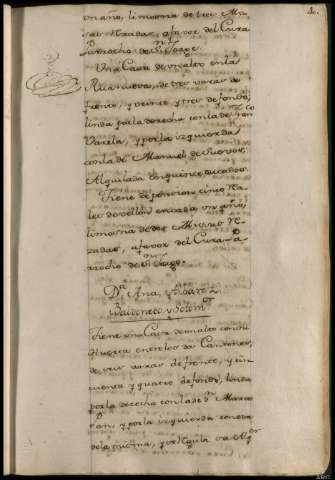 un año, limosna de tres Mi-
sas Rezadas, a favor del Cura
Parrocho de
Una Casa de un alto en la
Rua nueva, de tres varas de
frente, y veinte y tres de fondo,
linda por la derecha con la de
Varela, y por la izquierda
con la de Manuel de
Alquilada en quince ducados
Tiene de pension cinco Rea-
les de vellon en cada un año,
limosna de dos Misas Re-
zadas, a favor del Cura Pa-
rrocho de
Dª Ana,
Tiene una Casa de un alto con su
Huerta entre los Cantones,
de seis varas de frente, y cin-
cuenta y quatro de fondo, linda
por la derecha con la de Dⁿ Marcos
y por la izquierda con
de la misma, y